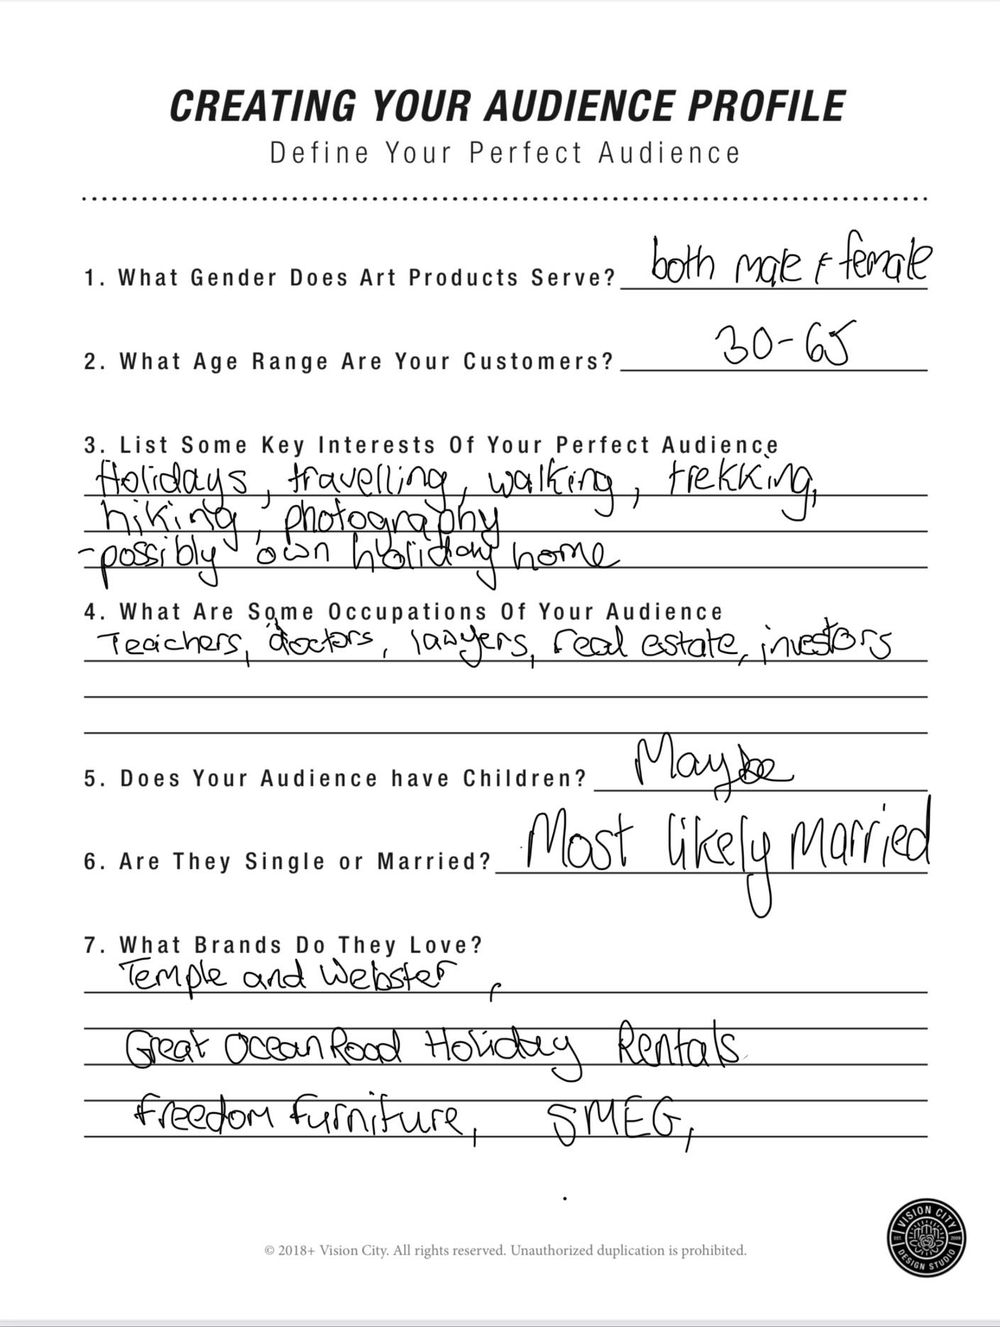 CREATING YOUR AUDIENCE PROFILE
Define Your Perfect Audience
1. What Gender Does Art Products Serve? both male & female
2. What Age Range Are Your Customers? 30-65
3. List Some Key Interests Of Your Perfect Audience
Holidays, travelling, walking, trekking,
hiking, photography
-possibly own holiday home
4. What Are Some Occupations Of Your Audience
Teachers, doctors, lawyers, real estate, investors
5. Does Your Audience have Children? Maybe
6. Are They Single or Married? Most likely Married
7. What Brands Do They Love?
Temple and Webster,
Great Ocean Road Holiday Rentals
Freedom furniture, SMEG,
VISION CITY
DESIGN STUDIO
© 2018+ Vision City. All rights reserved. Unauthorized duplication is prohibited.